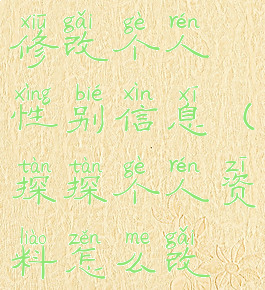 xiū gǎi gè rén
修改个人
xìng bié xìn xī
性别信息（
tàn tàn gè rén zī
探探个人资
liào zěn me gǎi
料怎么改